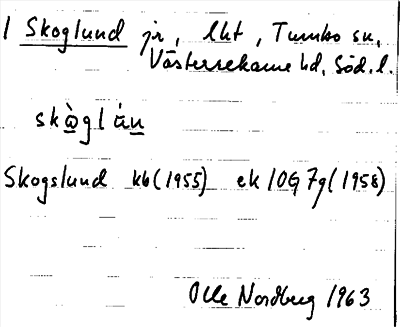 1 Skoglund jr, lht, Tumbo sn,
Västerrekarne hd, Söd. l.
skòglán
Skogslund kb (1955) ek 10G 7g (1958)
Olle Nordberg 1963